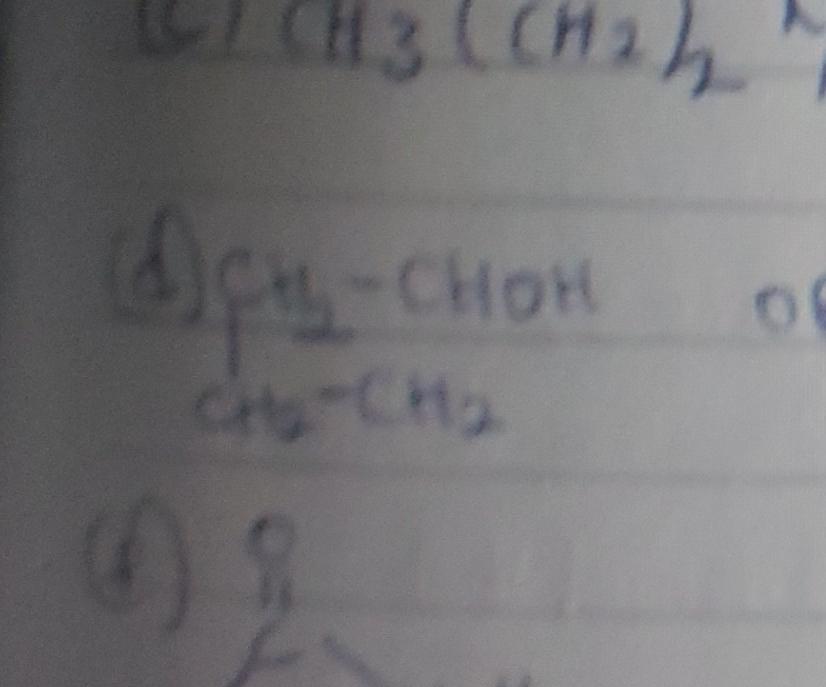 (c) CH3(CH2)2
(d) CH2-CHOH
CH2-CH2
O